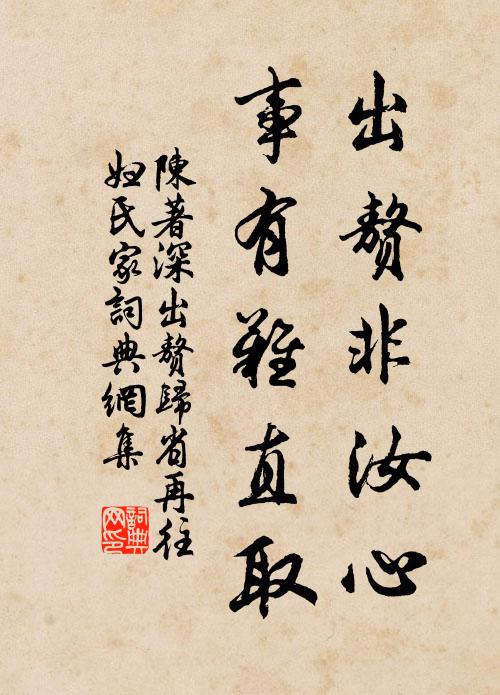 出贅非汝心
事有難直取
陳著深出贅歸省再往
妲氏家詞典網集
詞典
网印